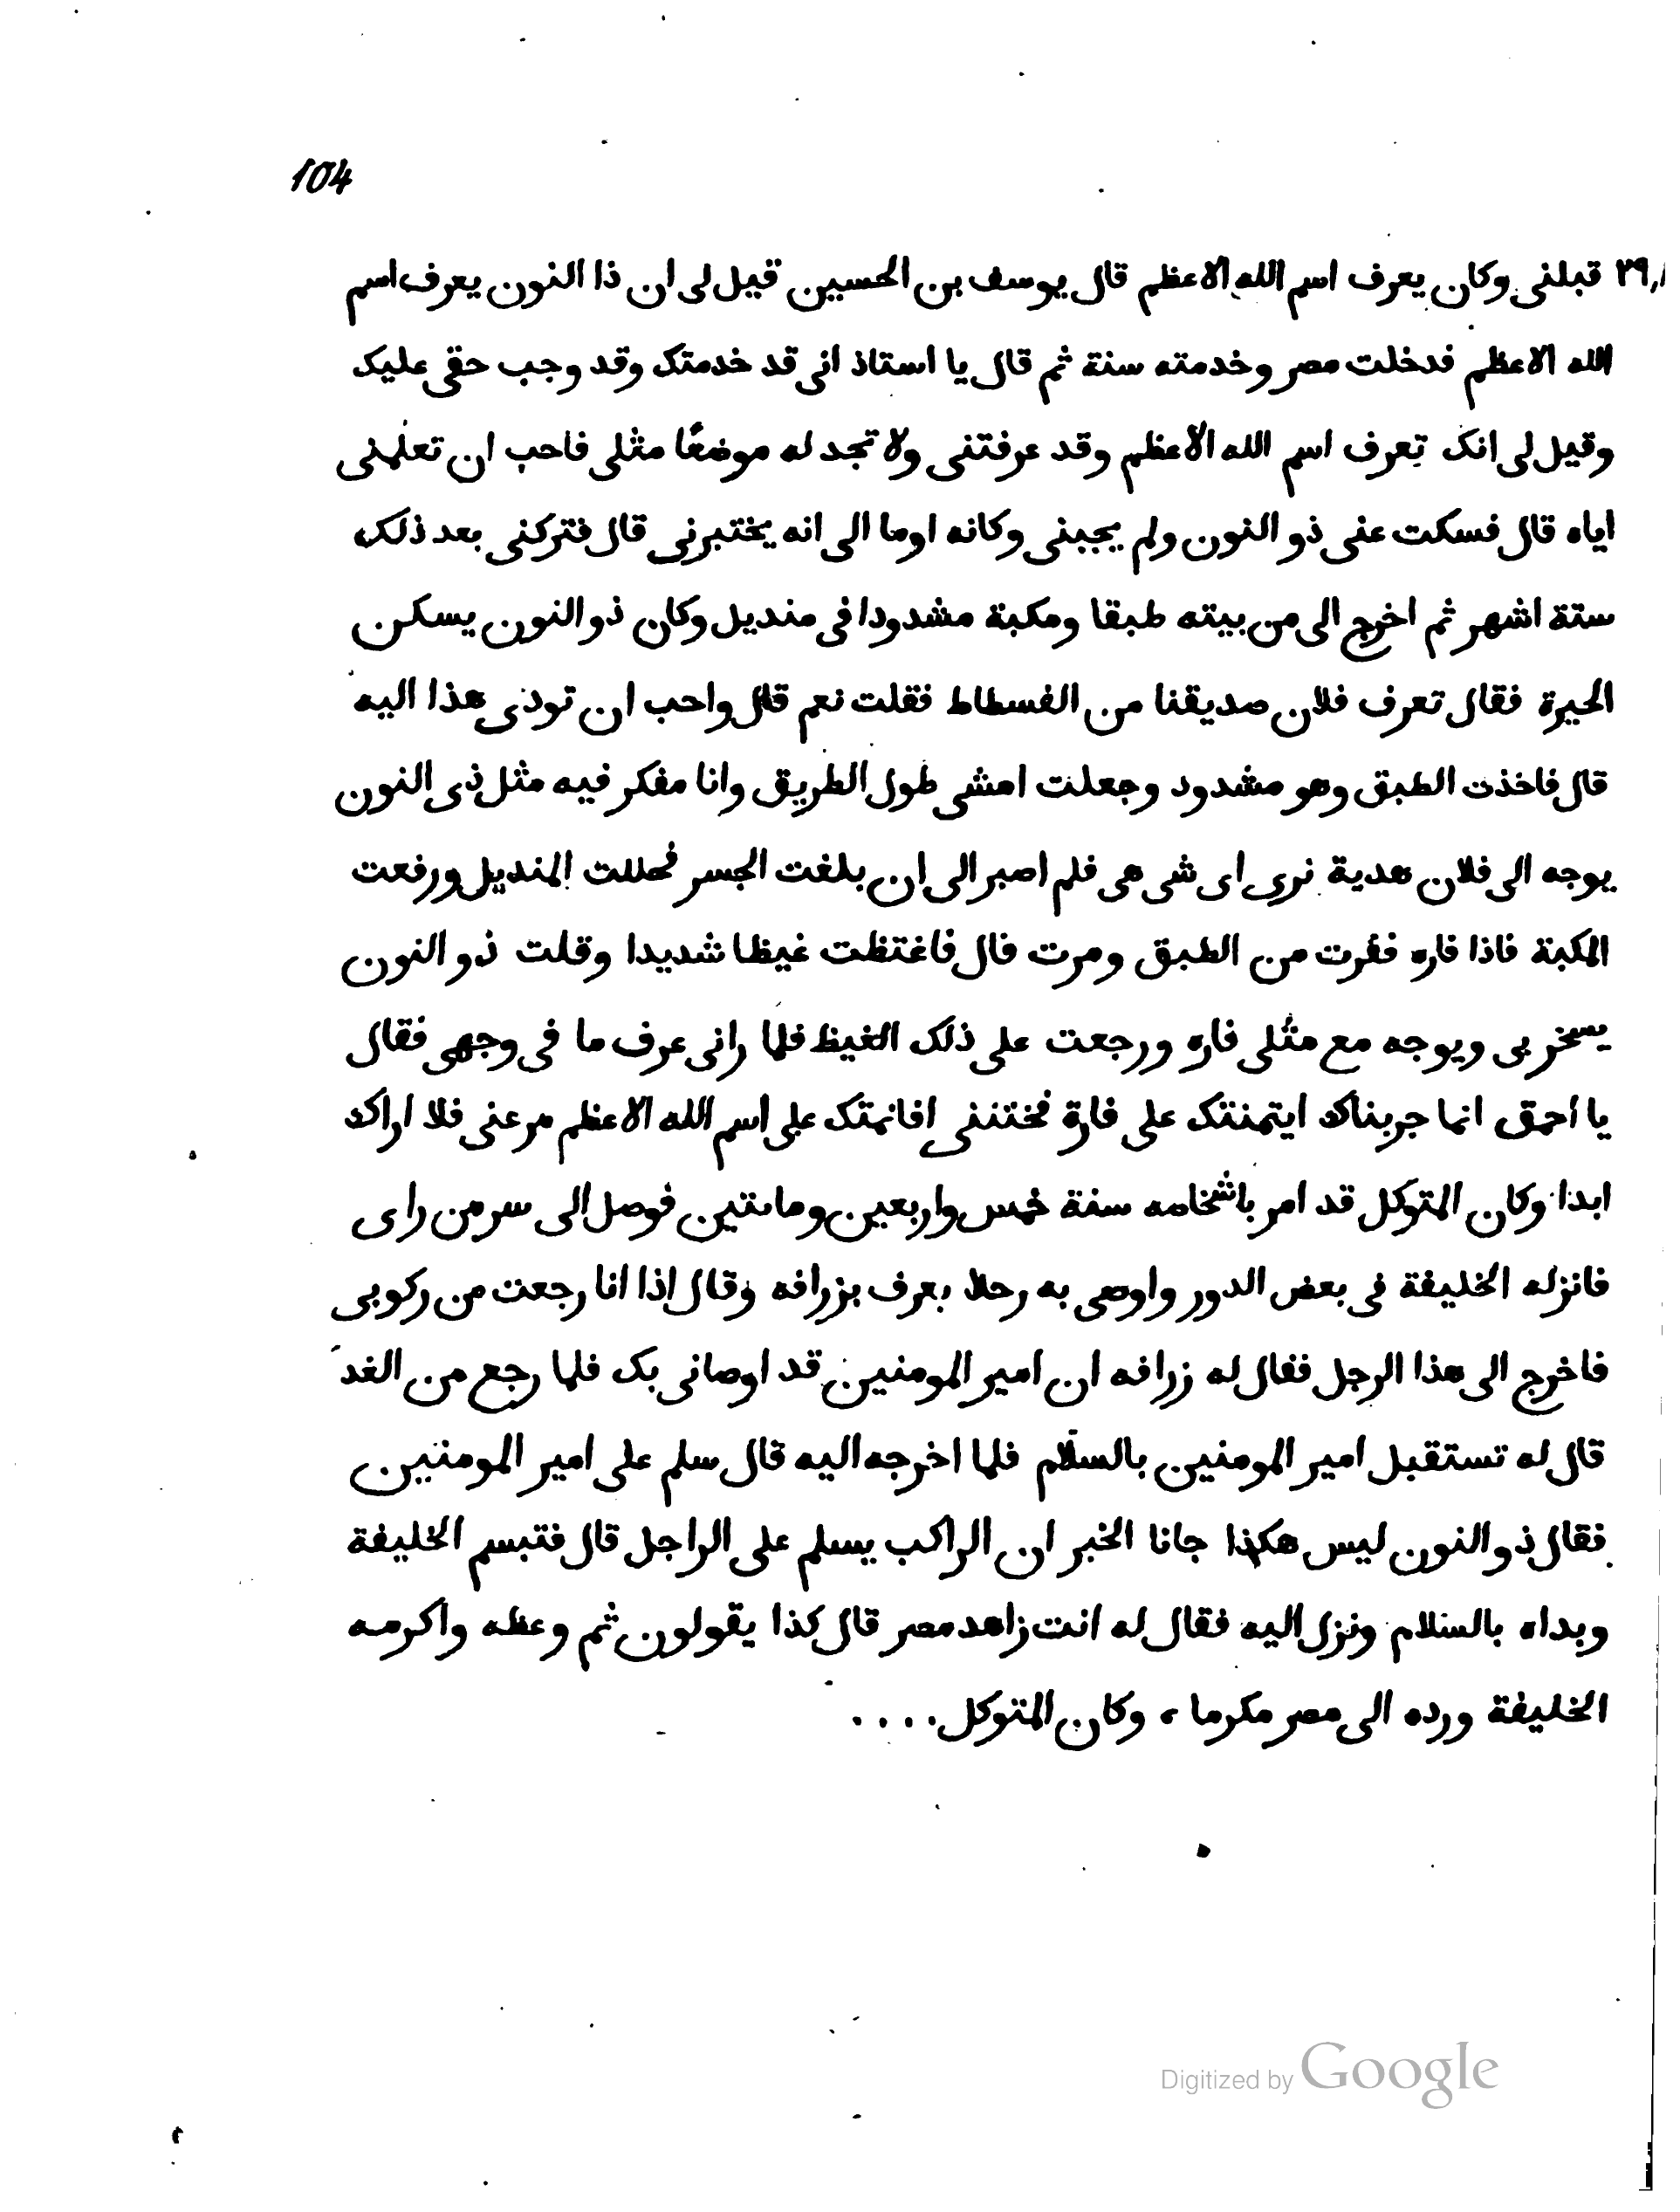 104
٢٩,١ قبلنى وكان يعرف اسم الله الاعظم قال يوسف بن الحسين قيل لى ان ذا النون يعرف اسم
الله الاعظم فدخلت مصر وخدمته سنة ثم قال يا استاذ انى قد خدمتك وقد وجب حقى عليك
وقيل لى انك تعرف اسم الله الاعظم وقد عرفتنى ولا تجد له موضعًا مثلى فاحب ان تعلمنى
اياه قال فسكت عنى ذو النون ولم يجبنى وكانه اوما الى انه يختبرنى قال فتركنى بعد ذلك
ستة اشهر ثم اخرج الى من بيته طبقا ومكبة مشدودا فى منديل وكان ذو النون يسكن
الحيرة فقال تعرف فلان صديقنا من الفسطاط فقلت نعم قال واحب ان تودى هذا اليه
قال فاخذت الطبق وهو مشدود وجعلت امشى طول الطريق وانا مفكر فيه مثل ذى النون
يوجه الى فلان هدية نرى اى شى هى فلم اصبر الى ان بلغت الجسر فحللت المنديل ورفعت
المكبة فاذا فاره ففرت من الطبق ومرت قال فاغتظت غيظا شديدا وقلت ذو النون
يسخر بى ويوجه مع مثلى فاره ورجعت على ذلك الغيظ فلما رانى عرف ما فى وجهى فقال
يا احمق انما جربناك ايتمنتك على فارة فختننى افانمتك على اسم الله الاعظم مر عنى فلا اراك
ابدا وكان المتوكل قد امر باشخاصه سنة خمس واربعين وماىتين فوصل الى سر من راى
فانزله الخليفة فى بعض الدور واوصى به رحلا بعرف بزرافه وقال اذا انا رجعت من ركوبى
فاخرج الى هذا الرجل فقال له زرافه ان امير المومنين قد اوصانى بك فلما رجع من الغد
قال له تستقبل امير المومنين بالسلام فلما اخرجه اليه قال سلم على امير المومنين
فقال ذو النون ليس هكذا جانا الخبر ان الراكب يسلم على الراجل قال فتبسم الخليفة
وبداه بالسلام ونزل اليه فقال له انت زاهد مصر قال كذا يقولون ثم وعظه واكرمه
الخليفة ورده الى مصر مكرما ، وكان المتوكل ....
Digitized by Google